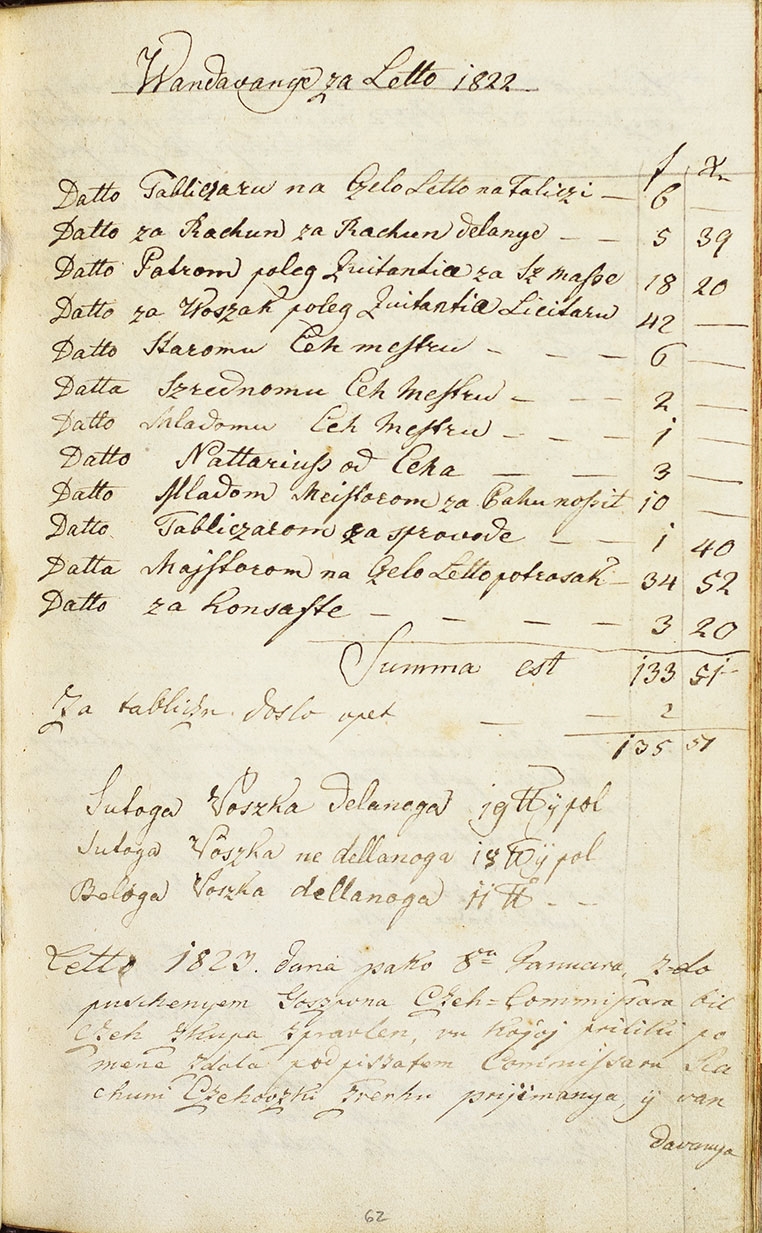 Wandavanye za Letto 1822
f xr
Datto Tabliczaru na Czelo Letto na Taliczi — 6 —
Datto za Rachun za Rachun delanye — — 5 39
Datto Patrom poleg Quitantiæ za Sz maſse 18 20
Datto za Woszak poleg Quitantiæ Licitaru 42 —
Datto Staromu Ceh meſtru — — — 6 —
Datta Szrednomu Ceh Meſtru — — — 2 —
Datto Mladomu Ceh Meſtru — — — 1 —
Datto Nattariuſs od Ceha — — 3 —
Datto Mladom Meiſtorom za noſsit 10 —
Datto Tabliczarom za sprovode — — 1 40
Datta Majſtorom na Czelo Letto potrosak — 34 52
Datto za Konsaſte — — — — 3 20
Summa est 133 51
Za tabliczu doslo opet — — 2
135 51
Sutoga Voszka delanoga 19 ℔ ÿ pol
Sutoga Voszka ne dellanoga 18 ℔ ÿ pol
Beloga Voszka dellanoga 11 ℔ — —
Letto 1823. dana pako 8ga Januara, z-do
puschenyem Goszpona Czeh=Commiſsara bil
Czeh zkupa zpravlen, vu kojoj priliki po
mene zdola podpiszatem Commiſsaru Ra
chuni Czehovzki zverhu prijimanya, ÿ van
davanya
62